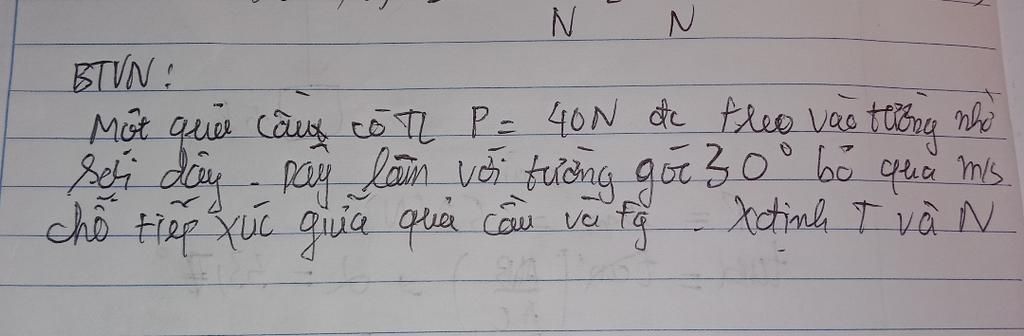 N N
BTVN:
Một quả cầu có TL P = 40N đc treo vào tường nhờ
sợi dây. Dây làm với tường góc 30° bỏ qua m/s
chỗ tiếp xúc giữa quả cầu và tg = Xđịnh T và N